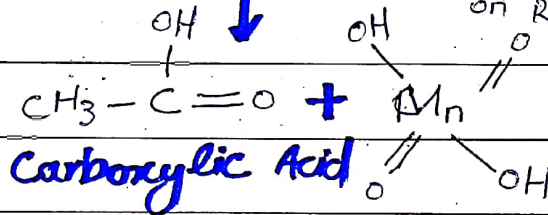 on R
OH OH O
CH3 – C = O + Mn
Carboxylic Acid O OH